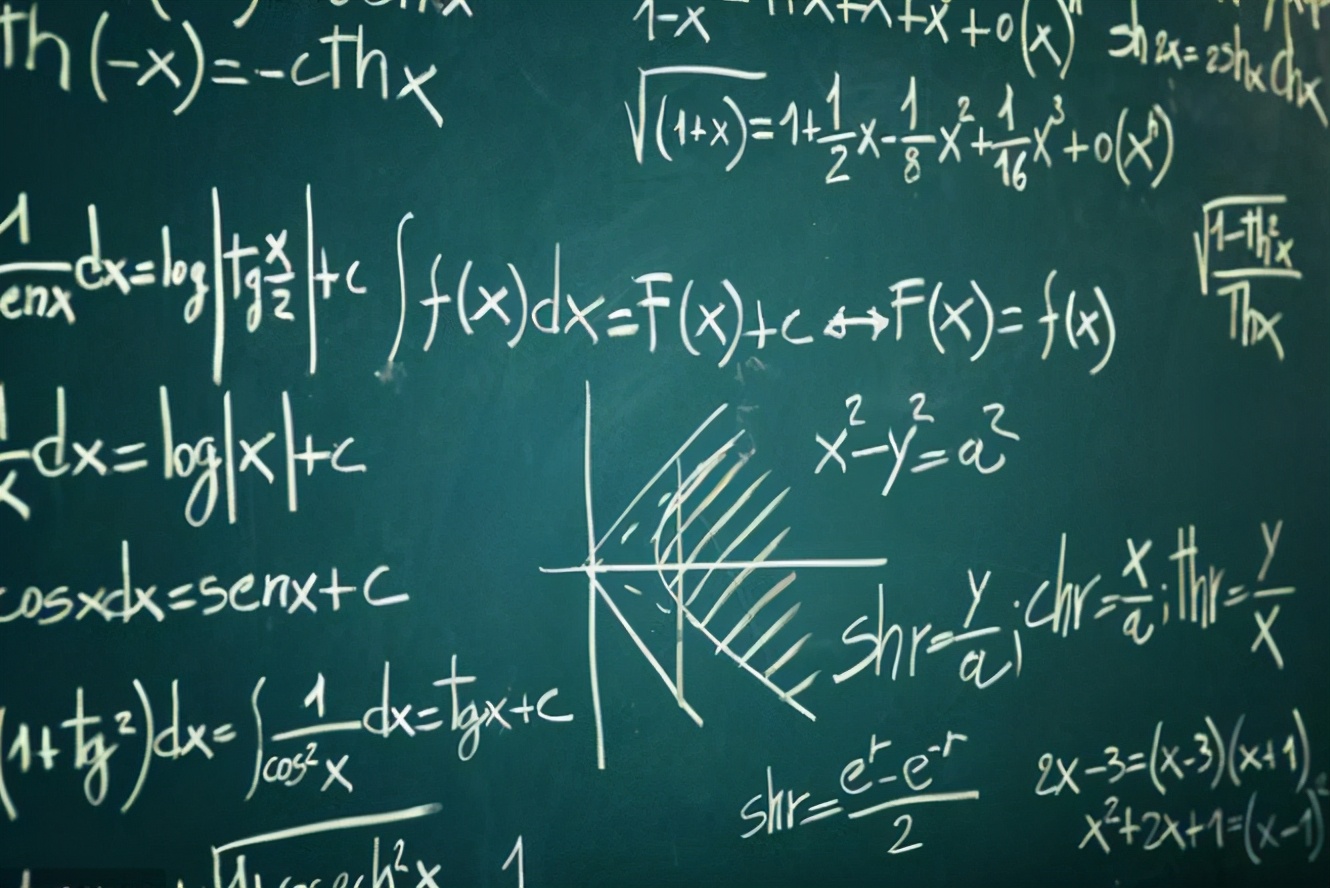 th(-x)=-cthx
1-x
+x+o(x)ⁿ
sh2x=2shx chx
√(1+x)=1+1/2x-1/8x²+1/16x³+o(xⁿ)
√1-th²x/Thx
1/enx dx=log|tg x/2|+c
∫f(x)dx=F(x)+c↔F(x)=f(x)
1/x dx=log|x|+c
x²-y²=a²
cosxdx=senx+c
shr=y/a; chr=x/a; thr=y/x
(1+tg²)dx=∫1/cos²x dx=tgx+c
shr=eʳ-e⁻ʳ/2
2x-3=(x-3)(x+1)
x²+2x+1=(x-1)²